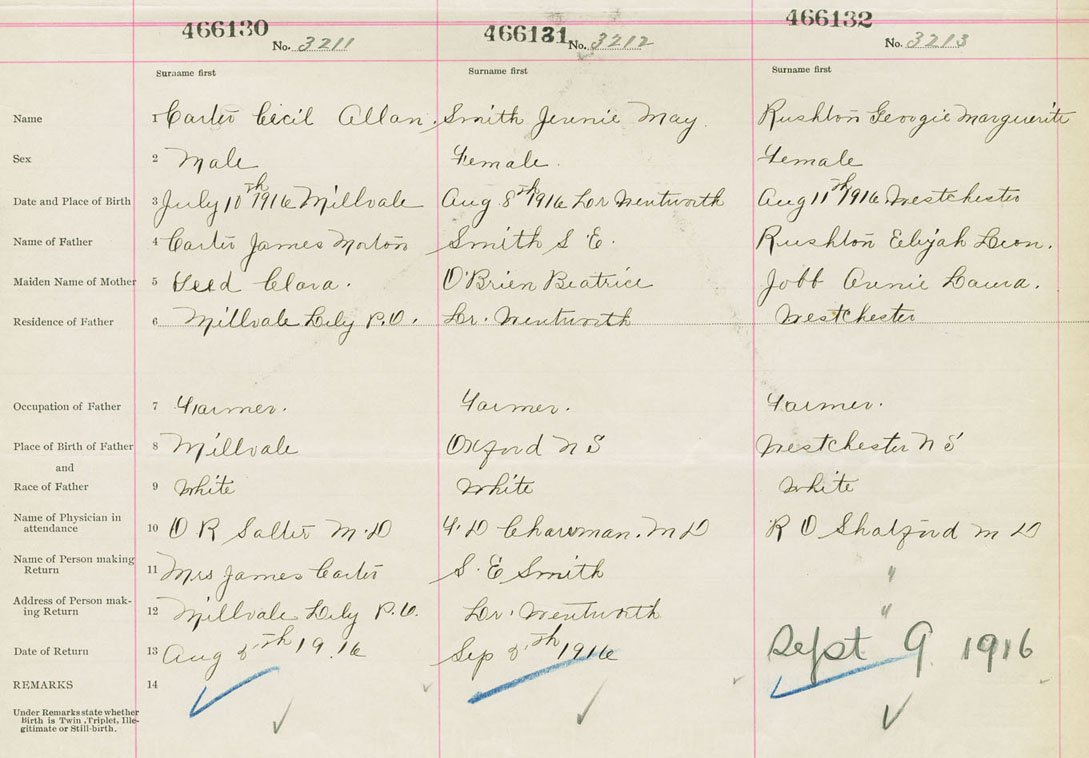 466130 466131 466132
No. 3211 No. 3212 No. 3213
Surname first Surname first Surname first
Name 1 Carter Cecil Allan Smith Jennie May. Rushton Georgie Marguerite
Sex 2 Male Female. Female
Date and Place of Birth 3 July 10th 1916 Millvale Aug 8th 1916 Lr Wentworth Aug 11th 1916 Westchester
Name of Father 4 Carter James Morton Smith S E. Rushton Elijah Leon.
Maiden Name of Mother 5 Clara. O'Brien Beatrice Jobb Annie Laura.
Residence of Father 6 Millvale Lily P.O. Lr. Wentworth Westchester
Occupation of Father 7 Farmer. Farmer. Farmer.
Place of Birth of Father 8 Millvale Oxford N S Westchester N S
and
Race of Father 9 White White White
Name of Physician in
attendance 10 D R Salter M.D M D R O Shatford M D
Name of Person making
Return 11 Mrs James Carter S. E Smith "
Address of Person mak-
ing Return 12 Millvale Lily P.O. Lr. Wentworth "
Date of Return 13 Aug 1916 Sep 1916 Sept 9 1916
REMARKS 14
Under Remarks state whether
Birth is Twin, Triplet, Ille-
gitimate or Still-birth.